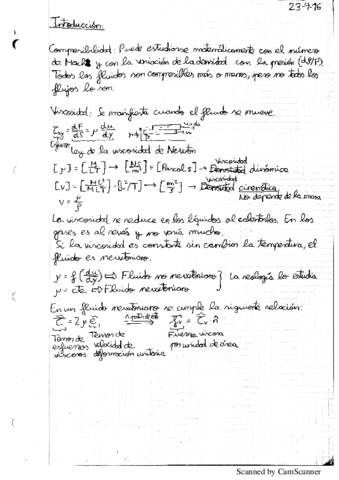 23-9-16
Introducción:
Compresibilidad: Puede estudiarse matemáticamente con el número
de Mach y con la variación de la densidad con la presión (dρ/P).
Todos los fluidos son compresibles más o menos, pero no todos los
flujos lo son.
Viscosidad: Se manifiesta cuando el fluido se mueve.
τxy = dF/dS = μ du/dy
Esfuerzo Ley de la viscosidad de Newton
[μ] = [M/LT] → [NS/m²] = [Pascal.s] → Densidad Viscosidad dinámica
→ [m²/s] → Densidad Viscosidad cinemática,
ν = μ/ρ No depende de la masa
La viscosidad se reduce en los líquidos al calentarlos. En los
gases es al revés y no varía mucho.
Si la viscosidad es constante sin cambios la temperatura, el
fluido es newtoniano.
μ = f(du/dy) ⇒ Fluido no newtoniano } La reología lo estudia
μ = cte ⇒ Fluido newtoniano
En un fluido newtoniano se cumple la siguiente relación:
Tensor de Tensor de Fuerza viscosa
esfuerzos velocidad de por unidad de área
viscosos deformación unitaria
Scanned by CamScanner